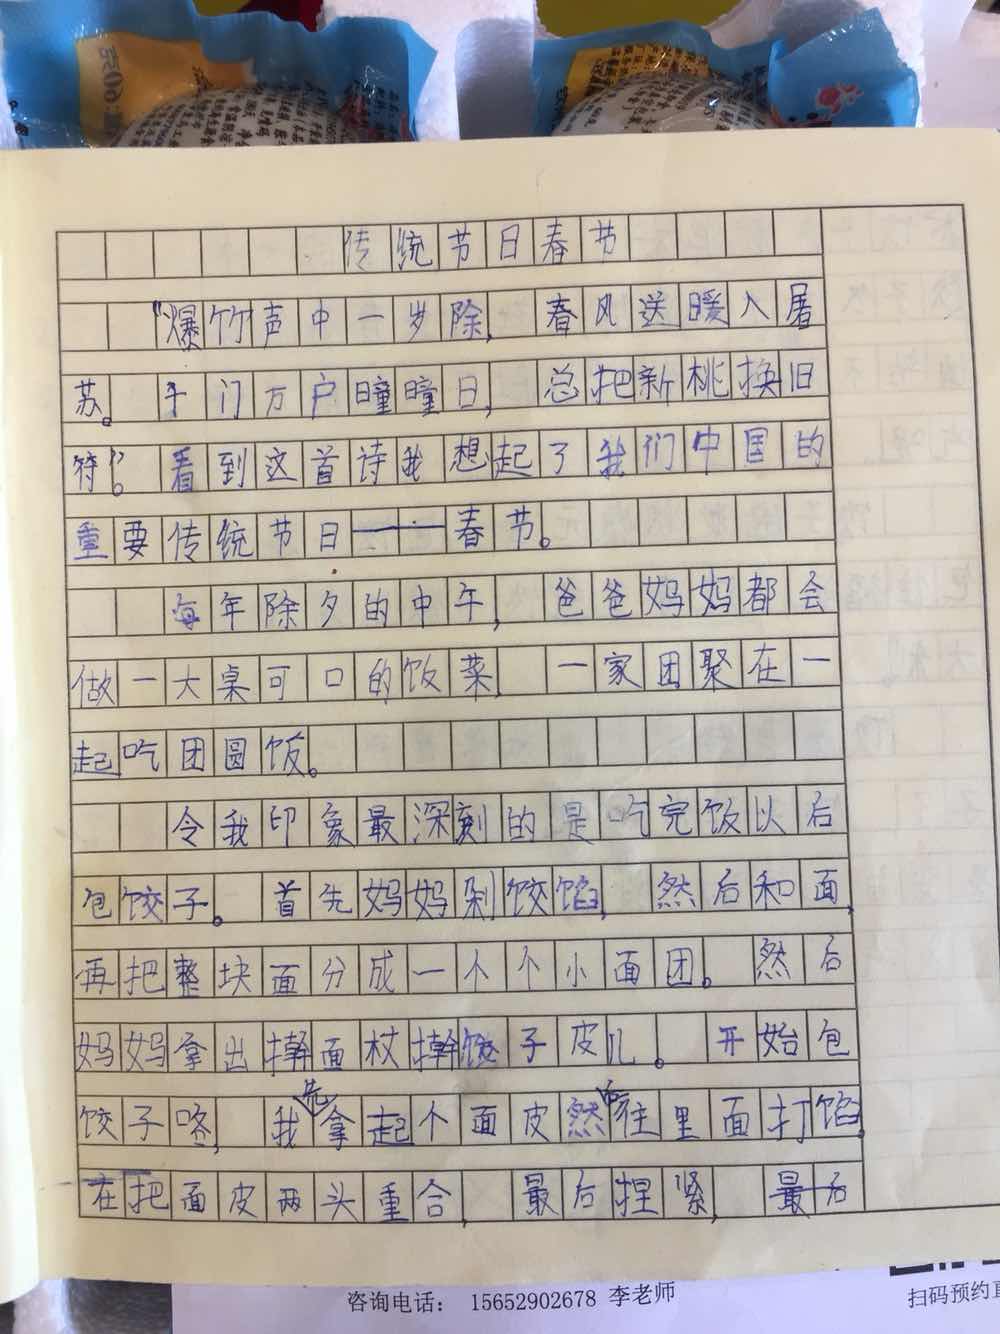 传统节日春节
“爆竹声中一岁除，春风送暖入屠
苏。千门万户曈曈日，总把新桃换旧
符”。看到这首诗我想起了我们中国的
重要传统节日——春节。
每年除夕的中午，爸爸妈妈都会
做一大桌可口的饭菜，一家团聚在一
起吃团圆饭。
令我印象最深刻的是吃完饭以后
包饺子。首先妈妈剁饺馅，然后和面，
再把整块面分成一个个小面团。然后
妈妈拿出擀面杖擀饺子皮儿。开始包
饺子咚，我先拿起个面皮然后往里面打馅，
在把面皮两头重合，最后捏紧，最后
咨询电话： 15652902678 李老师
扫码预约直